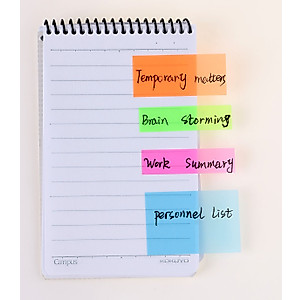 Temporary matters
Brain Storming
Work Summary
personnel list
Campus
KOKUYO